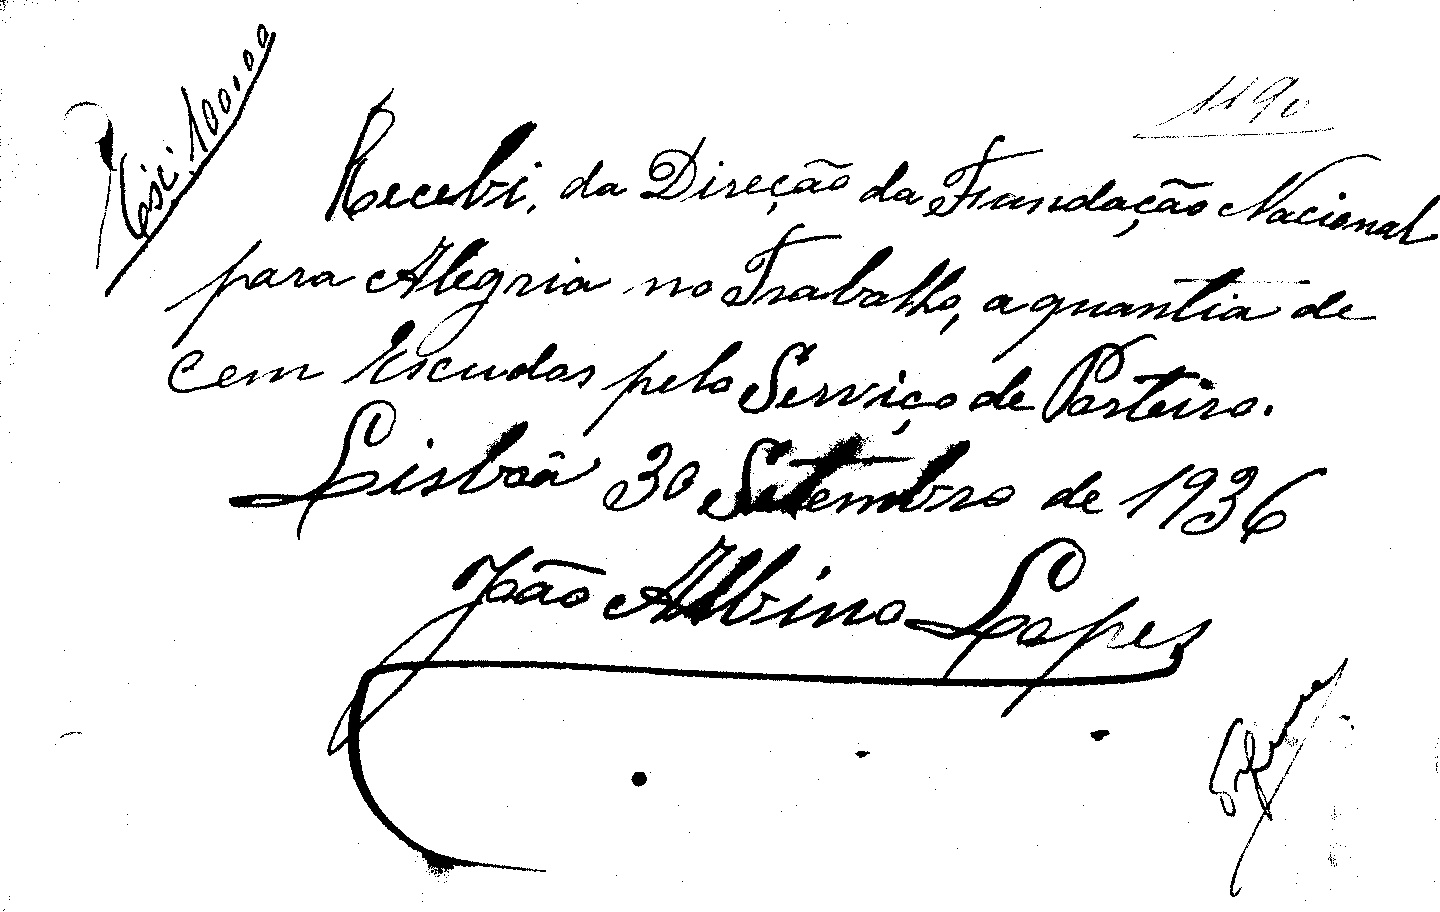 Esc: 100.00
1190
Recebi, da Direção da Fundação Nacional
para Alegria no Trabalho, a quantia de
cem Escudos pelo Serviço de Porteiro.
Lisboâ 30 Setembro de 1936
João Albino Lopes